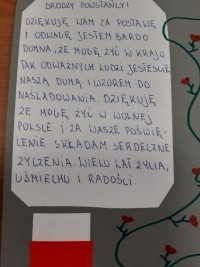 DRODZY POWSTAŃCY!
DZIĘKUJĘ WAM ZA POSTAWĘ
I ODWAGĘ JESTEM BARDO
DUMNA, ŻE MOGĘ ŻYĆ W KRAJU
TAK ODWAŻNYCH LUDZI. JESTEŚCIE
NASZĄ DUMĄ I WZOREM DO
NAŚLADOWANIA. DZIĘKUJĘ
ŻE MOGĘ ŻYĆ W WOLNEJ
POLSCE I ZA WASZE POŚWIĘ-
LENIE SKŁADAM SERDECZNE
ŻYCZENIA. WIELU LAT ŻYCIA,
UŚMIECHU I RADOŚCI.